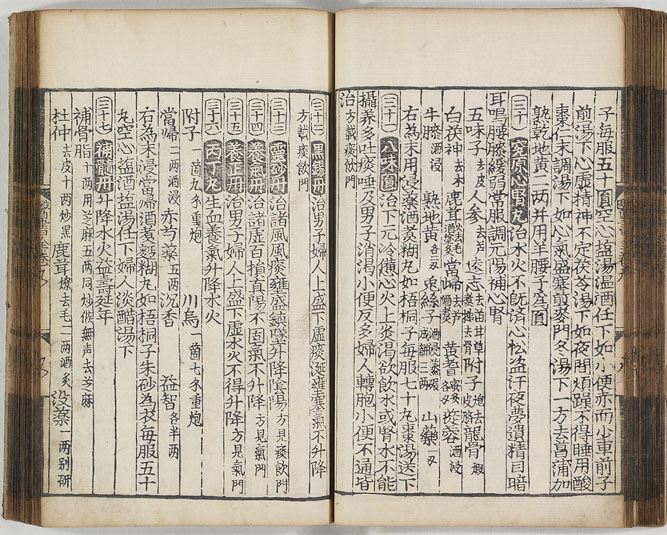 子每服五十頂空心塩湯温酒任下如小便赤而少車前子
前湯下心虚精神不定茯苓湯下如夜間煩躁不得睡用酸
棗仁末調湯下如心氣盛塞煎麥門冬湯下一方去菖蒲加
熟乾地黄二两并用羊腰子為圓
三十 究原心腎丸 治水火不既濟心忪盗汗夜夢遺精目暗
耳鳴腰膝緩弱常服調元陽補心腎
五味子去皮 人参去芦 遠志 附子炮去皮臍 龍骨煅
白茯神去木 鹿茸 當歸 黄耆 蓯蓉酒浸
牛膝酒浸 熟地黄各二两 兎絲子 山藥一两
右為末用浸藥酒煮糊丸如梧桐子每服七十丸棗湯送下
三十一 八味圓 治下元冷憊心火上炎渴欲飲水或腎水不能
攝養多吐痰唾及男子消渴小便反多婦人轉胞小便不通皆
治 方載痰飲門
三十二 黒錫丹 治男子婦人上盛下虚痰涎壅塞氣不升降
方載痰飲門
三十三 靈砂丹 治諸風風痰壅盛鎮墜升降陰陽方見痰飲門
三十四 養氣丹 治諸虚百損真陽不固氣不升降方見氣門
三十五 養正丹 治男子婦人上盛下虚水火不得升降方見氣門
三十六 丙丁丸 生血養氣升降水火
附子一箇九錢重炮 川烏一箇七錢重炮
當歸二两酒浸 赤芍藥五两 沉香 益智各半两
右為末浸當歸酒煮麪糊丸如梧桐子朱砂為衣每服五十
丸空心塩酒塩湯任下婦人淡醋湯下
三十七 補髓丹 升降水火益壽延年
補骨脂十两用芝麻五两同炒候無声去芝麻
杜仲去皮十两炒黒 鹿茸燎去毛二两酒炙 没藥一两别研